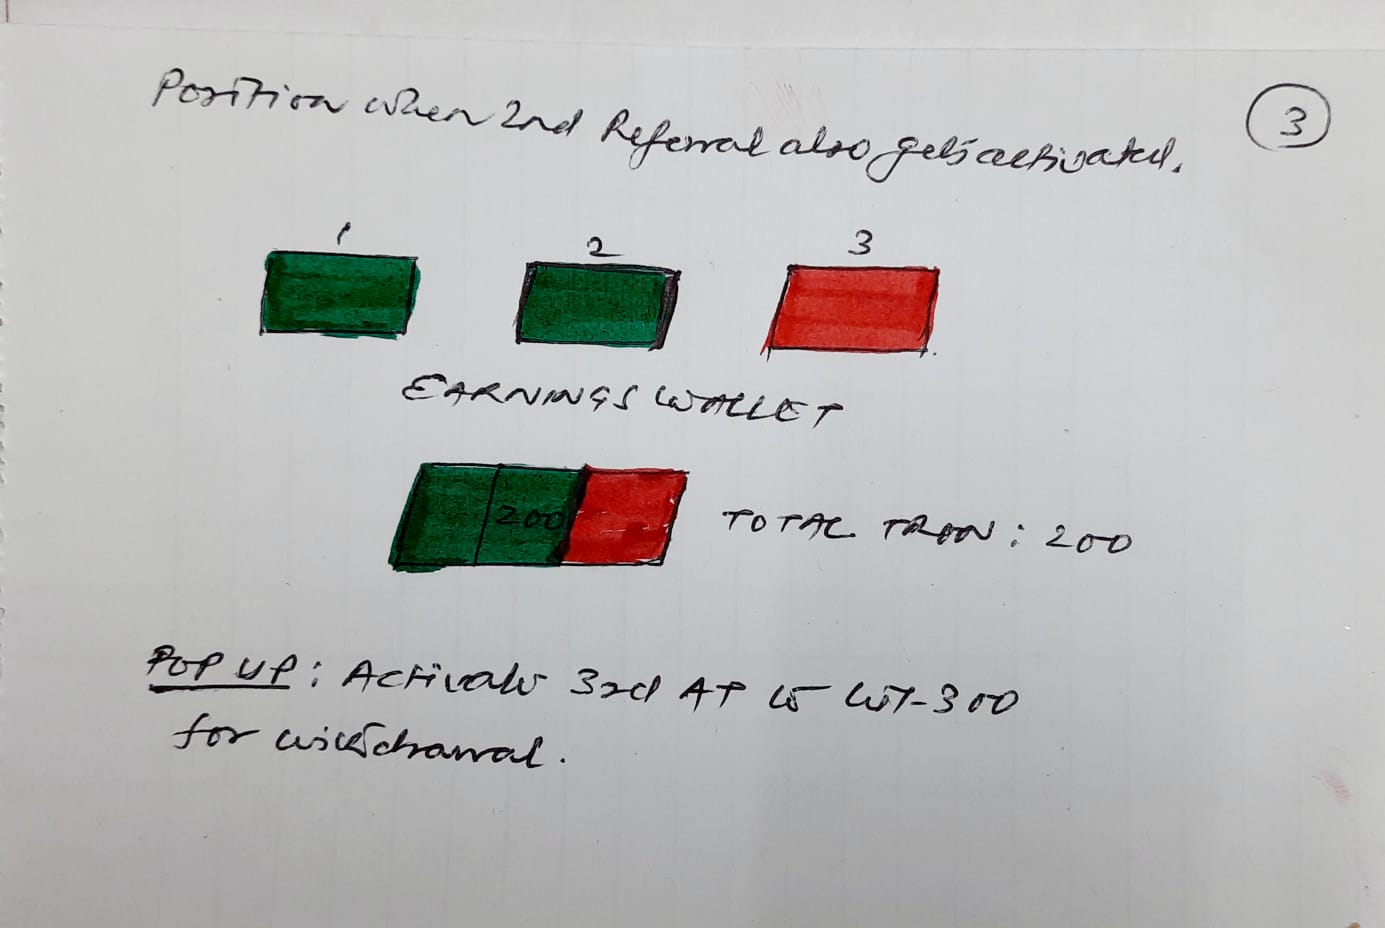 Position when 2nd Referral also gets activated.
3
1 2 3
EARNINGS WALLET
200
TOTAL TRON: 200
POP UP: Activate 3rd AP to WT-300
for withdrawal.